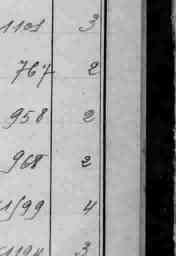 1101 3
767 2
958 2
968 2
1199 4
3